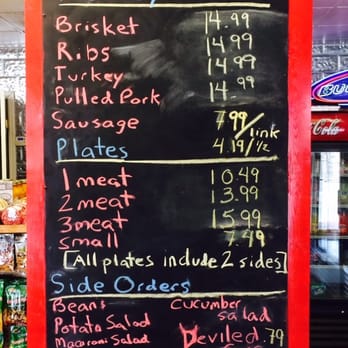 Brisket 14.99
Ribs 14.99
Turkey 14.99
Pulled Pork 14.99
Sausage 7.99/link
4.19/½
Plates
1 meat 10.49
2 meat 13.99
3 meat 15.99
small 7.49
[All plates include 2 sides]
Side Orders
Beans Cucumber salad
Potato Salad Deviled .79
Macaroni Salad
Coca-Cola